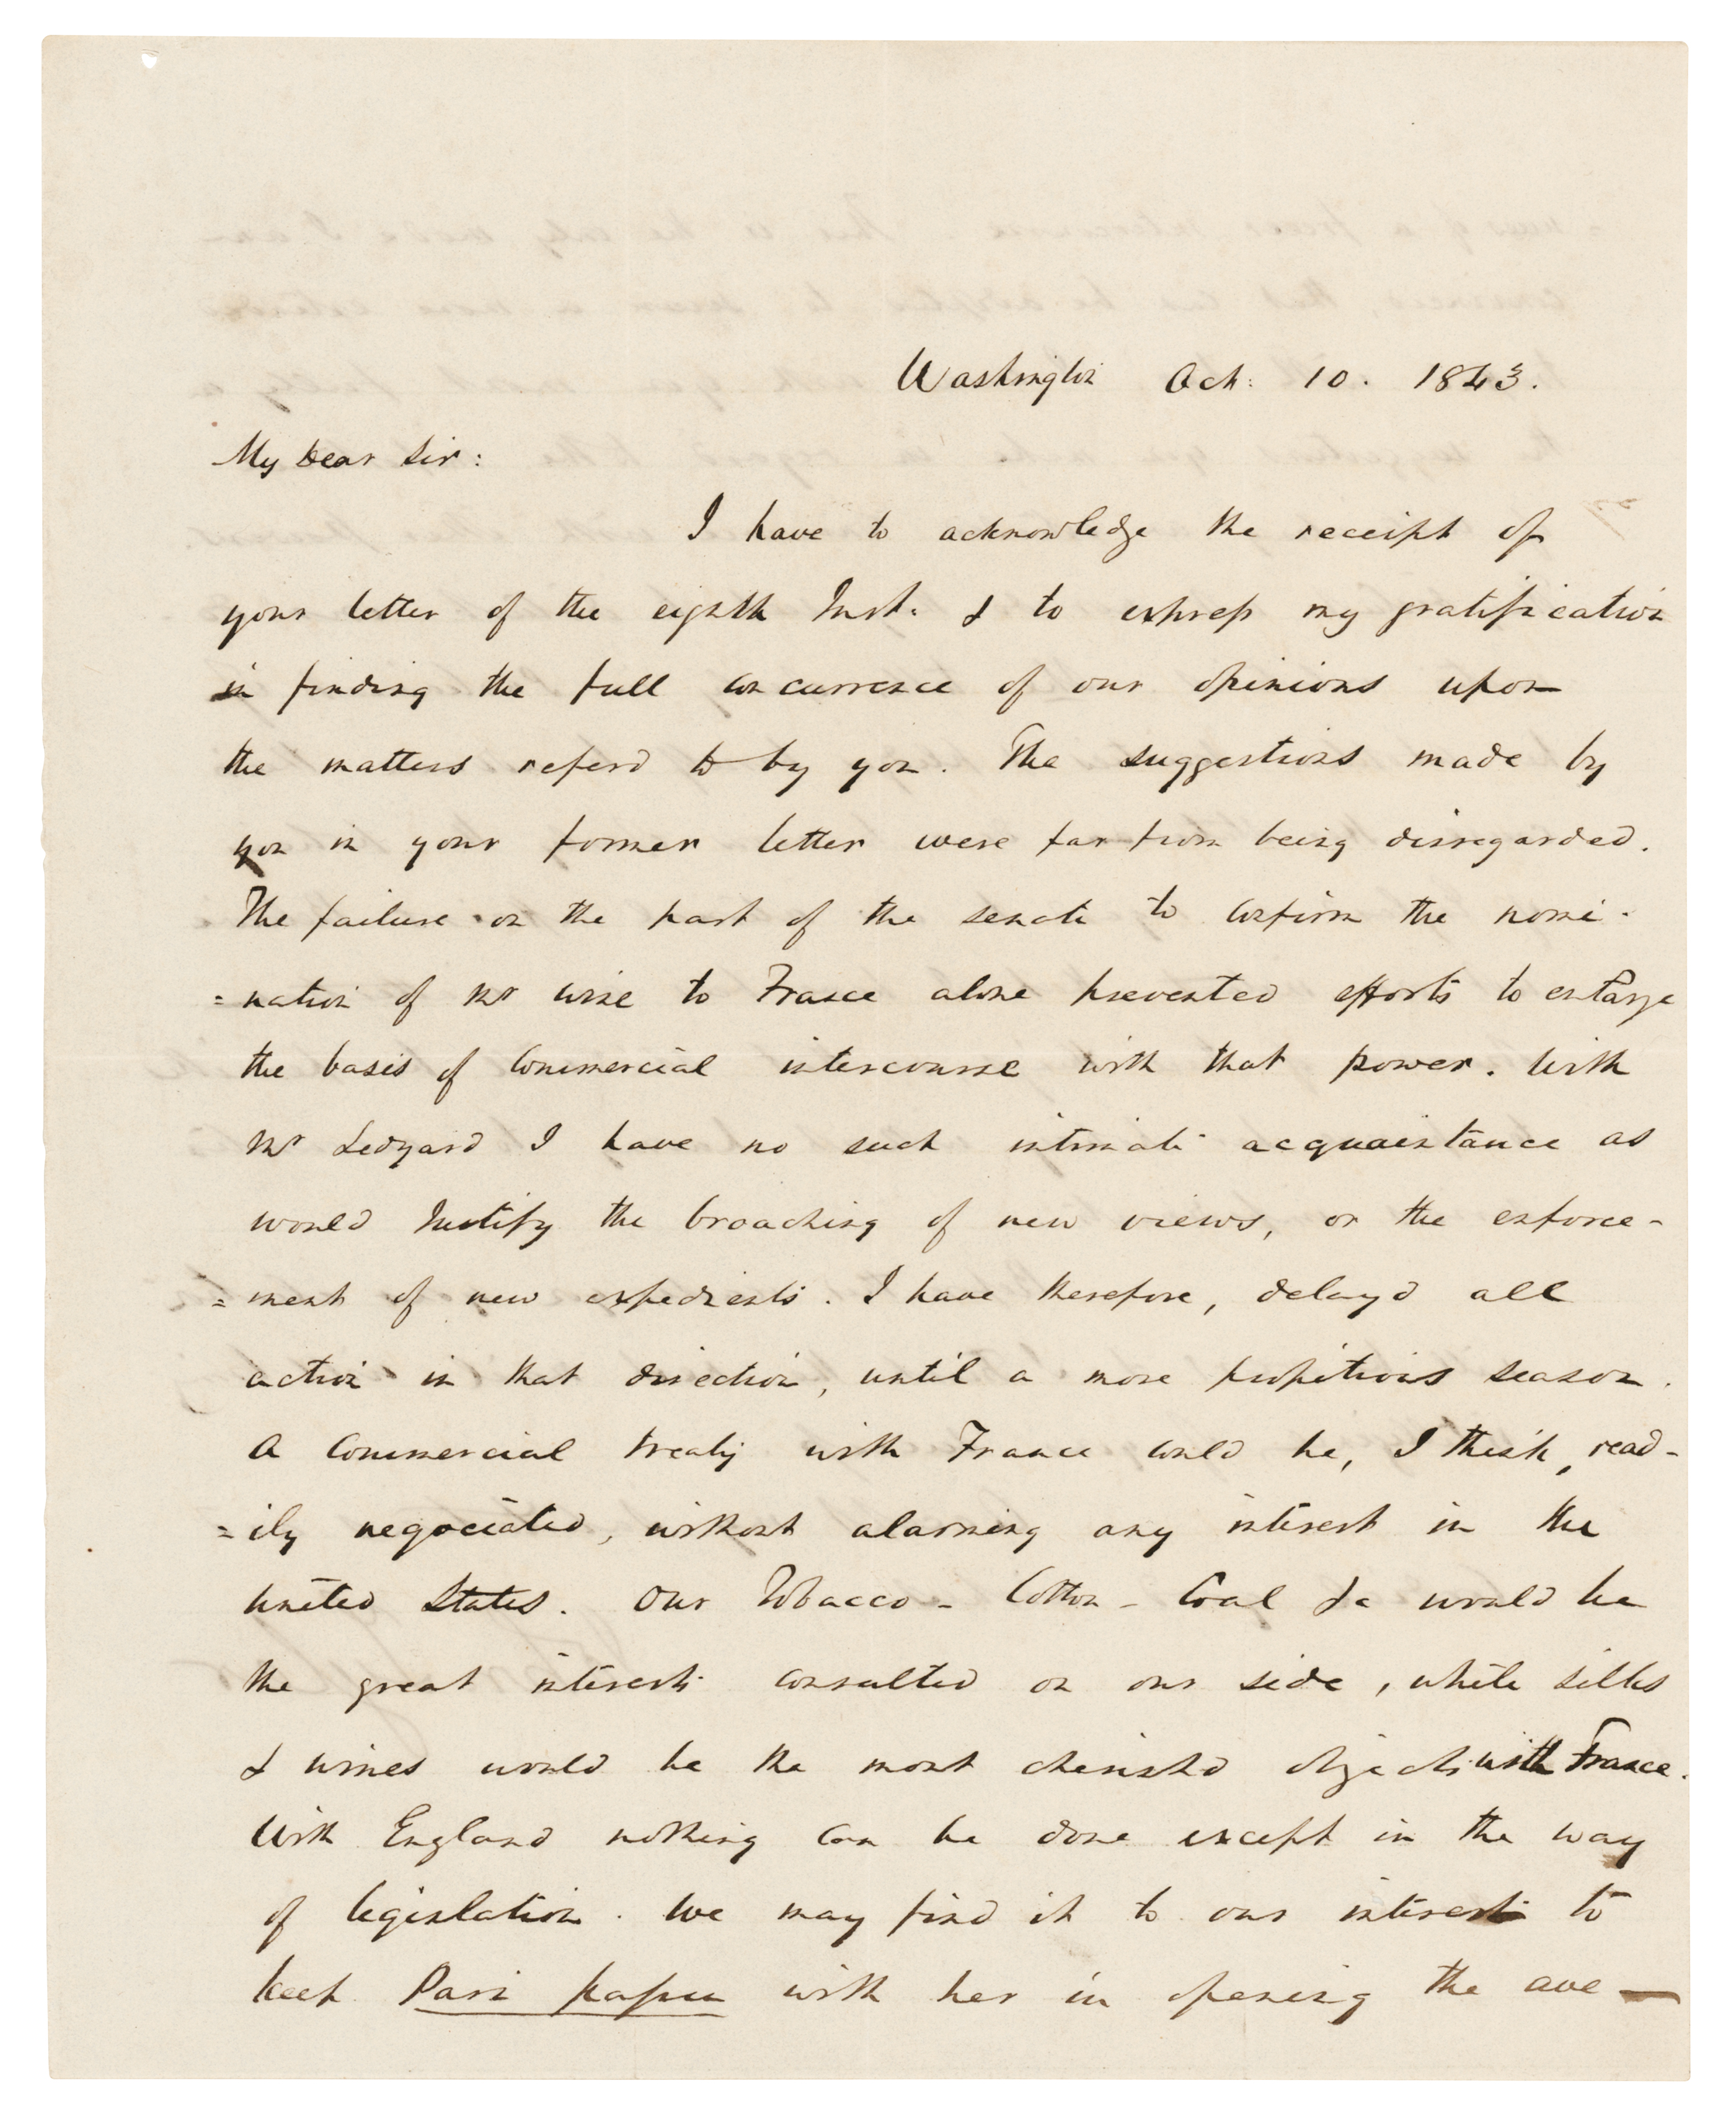 Washington Oct: 10. 1843.
My Dear Sir:
I have to acknowledge the receipt of
your letter of the eighth Inst. & to express my gratification
in finding the full concurrence of our opinions upon
the matters referd to by you. The suggestions made by
you in your former letter were far from being disregarded.
The failure on the part of the senate to confirm the nomi-
=nation of Mr Wise to France alone prevented efforts to enlarge
the basis of Commercial intercourse with that power. With
Mr Ledyard I have no such intimate acquaintance as
would Justify the broaching of new views, or the enforce-
=ment of new expedients. I have therefore, delay'd all
action in that direction, until a more propitious season.
A Commercial treaty with France could be, I think, read-
=ily negociated, without alarming any interest in the
United States. Our Tobacco - Cotton - Coal &c would be
the great interests consulted on our side, while silks
& wines would be the most cherishd objects with France.
With England nothing can be done except in the way
of legislation. We may find it to our interest to
keep Pari passu with her in opening the ave-